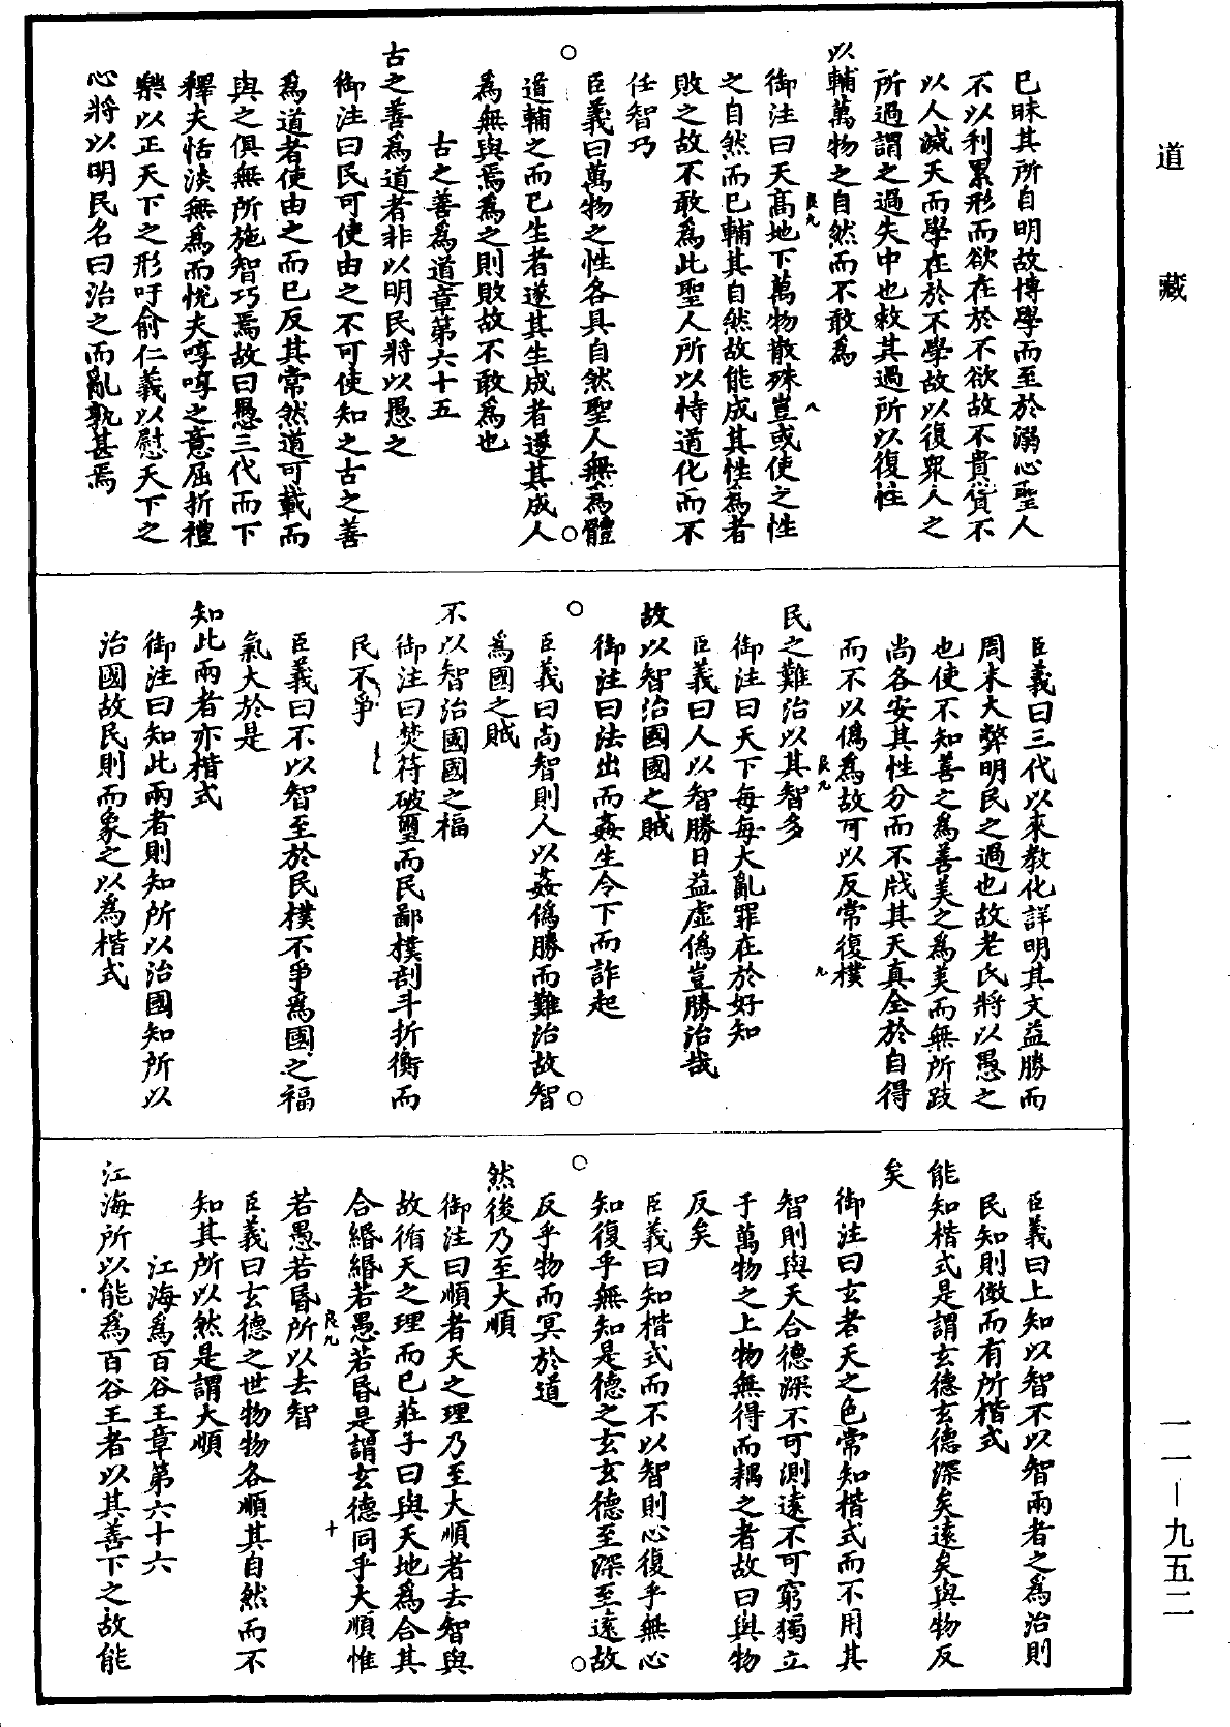 道藏
已昧其所自明故博學而至於溺心聖人
不以利累形而欲在於不欲故不貴貨不
以人滅天而學在於不學故以復衆人之
所過謂之過失中也救其過所以復性
以輔萬物之自然而不敢為
御注曰天高地下萬物散殊豈或使之性
之自然而已輔其自然故能成其性為者
敗之故不敢為此聖人所以恃道化而不
任智巧
臣義曰萬物之性各具自然聖人無為體
道輔之而已生者遂其生成者遂其成人
為無與焉為之則敗故不敢為也
古之善為道章第六十五
古之善為道者非以明民將以愚之
御注曰民可使由之不可使知之古之善
為道者使由之而已反其常然道可載而
與之俱無所施智巧焉故曰愚三代而下
釋夫恬淡無為而悅夫啍啍之意屈折禮
樂以正天下之形吁俞仁義以慰天下之
心將以明民名曰治之而亂孰甚焉
臣義曰三代以來教化詳明其文益勝而
周末大弊明民之過也故老氏將以愚之
也使不知善之為善美之為美而無所跂
尚各安其性分而不戕其天真全於自得
而不以僞為故可以反常復樸
民之難治以其智多
御注曰天下每每大亂罪在於好知
臣義曰人以智勝日益虛僞豈勝治哉
故以智治國國之賊
御注曰法出而姦生令下而詐起
臣義曰尚智則人以姦僞勝而難治故智
為國之賊
不以智治國國之福
御注曰焚符破璽而民鄙樸剖斗折衡而
民不爭
臣義曰不以智至於民樸不爭為國之福
氣大於是
知此兩者亦楷式
御注曰知此兩者則知所以治國知所以
治國故民則而象之以為楷式
臣義曰上知以智不以智兩者之為治則
民知則傚而有所楷式
能知楷式是謂玄德玄德深矣遠矣與物反
矣
御注曰玄者天之色常知楷式而不用其
智則與天合德深不可測遠不可窮獨立
于萬物之上物無得而耦之者故曰與物
反矣
臣義曰知楷式而不以智則心復乎無心
知復乎無知是德之玄玄德至深至遠故
反乎物而冥於道
然後乃至大順
御注曰順者天之理乃至大順者去智與
故循天之理而已莊子曰與天地為合其
合緡緡若愚若昏是謂玄德同乎大順惟
若愚若昏所以去智
臣義曰玄德之世物物各順其自然而不
知其所以然是謂大順
江海為百谷王章第六十六
江海所以能為百谷王者以其善下之故能
良九
八
良九
九
良九
十
一一－九五二